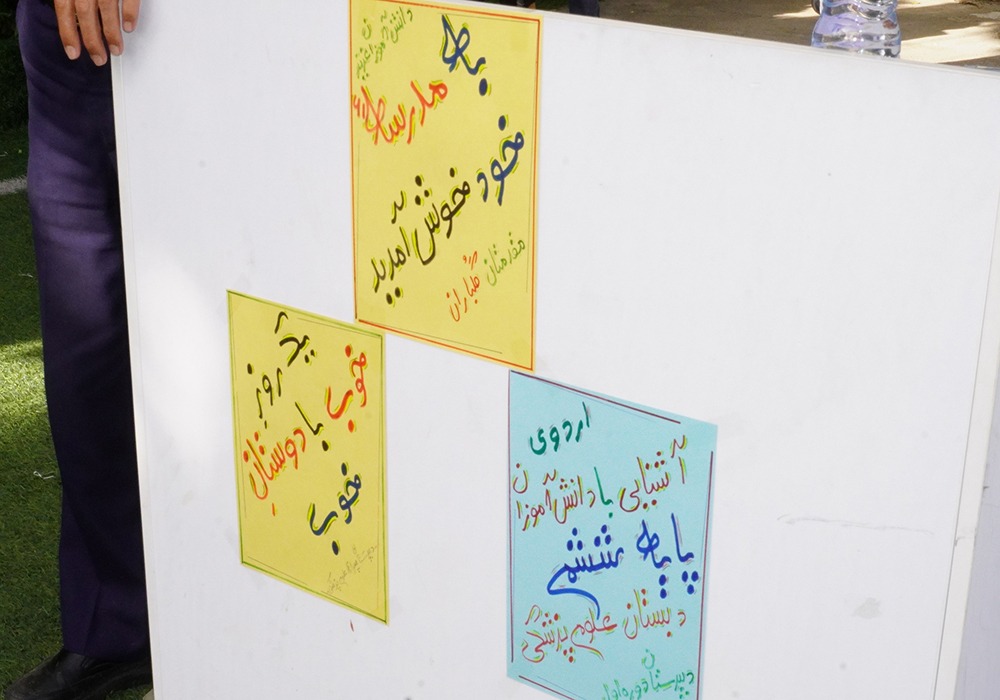 دانش آموزان عزیز
به
مدرسهٔ
خود
خوش آمدید
مقدمتان
گلباران
یک روز
خوب با دوستان
خوب
اردوی
آشنایی با دانش آموزان
پایه ششم
دبستان علوم پزشکی
دبیرستان دوره اول